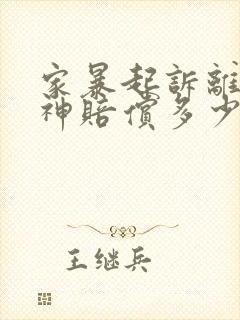 家暴起訴離
神賠償多少
王继兵